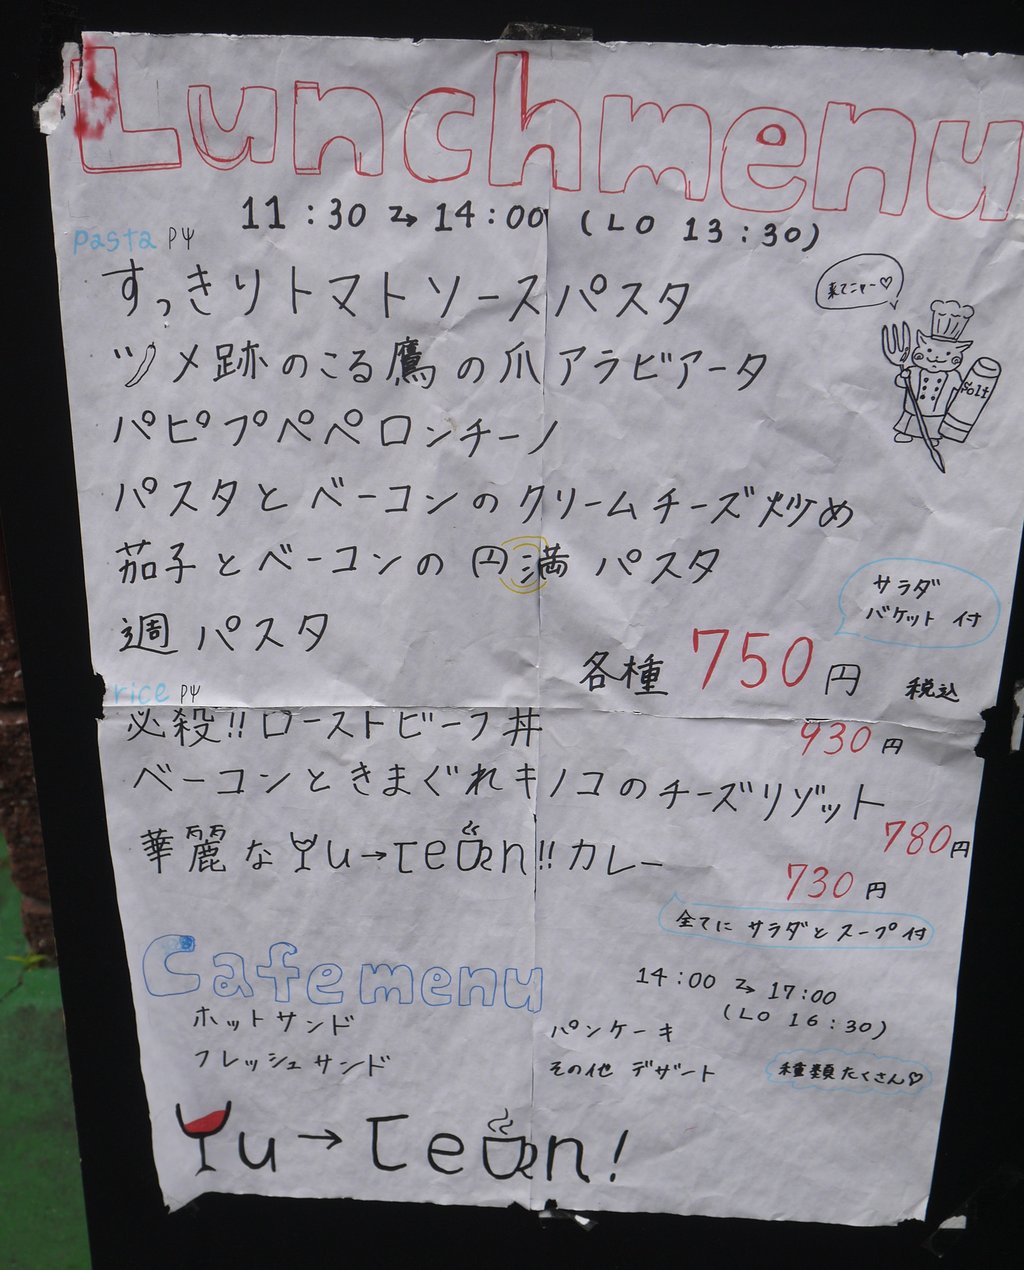 Lunch menu
11:30 → 14:00 (LO 13:30)
pasta
すっきりトマトソースパスタ
来てニャー♡
ツメ跡のこる鷹の爪アラビアータ
Solt
パピプペペロンチーノ
パスタとベーコンのクリームチーズ炒め
茄子とベーコンの円満パスタ
サラダ
バケット付
週パスタ
各種 750円 税込
rice
必殺!!ローストビーフ丼
930円
ベーコンときまぐれキノコのチーズリゾット
780円
華麗なYu→tean!!カレー
730円
全てにサラダとスープ付
Cafe menu
14:00 → 17:00
(LO 16:30)
ホットサンド
パンケーキ
フレッシュサンド
その他デザート
種類たくさん♡
Yu→tean!